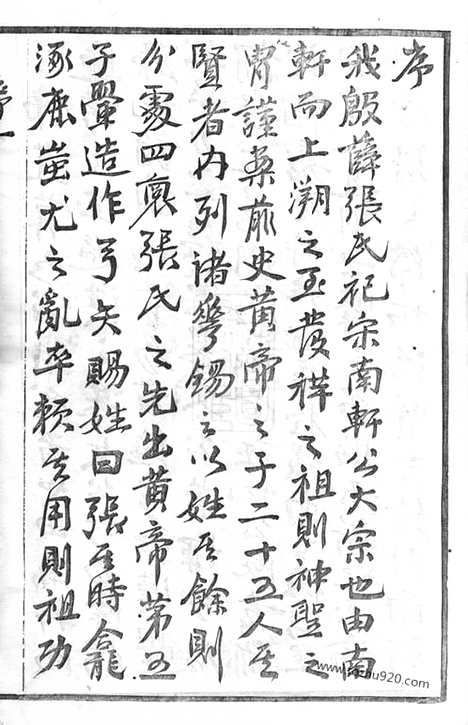 序
我殷薛張氏祀宗南軒公大宗也由南
軒而上溯之至發祥之祖則神聖之
胄謹案前史黃帝之子二十五人其
賢者內列諸號錫之以姓其餘則
分處四裔張氏之先出黃帝第五
子翬造作弓矢賜姓曰張其時龕
涿鹿蚩尤之亂率賴其用則祖功
www.jiashu920.com